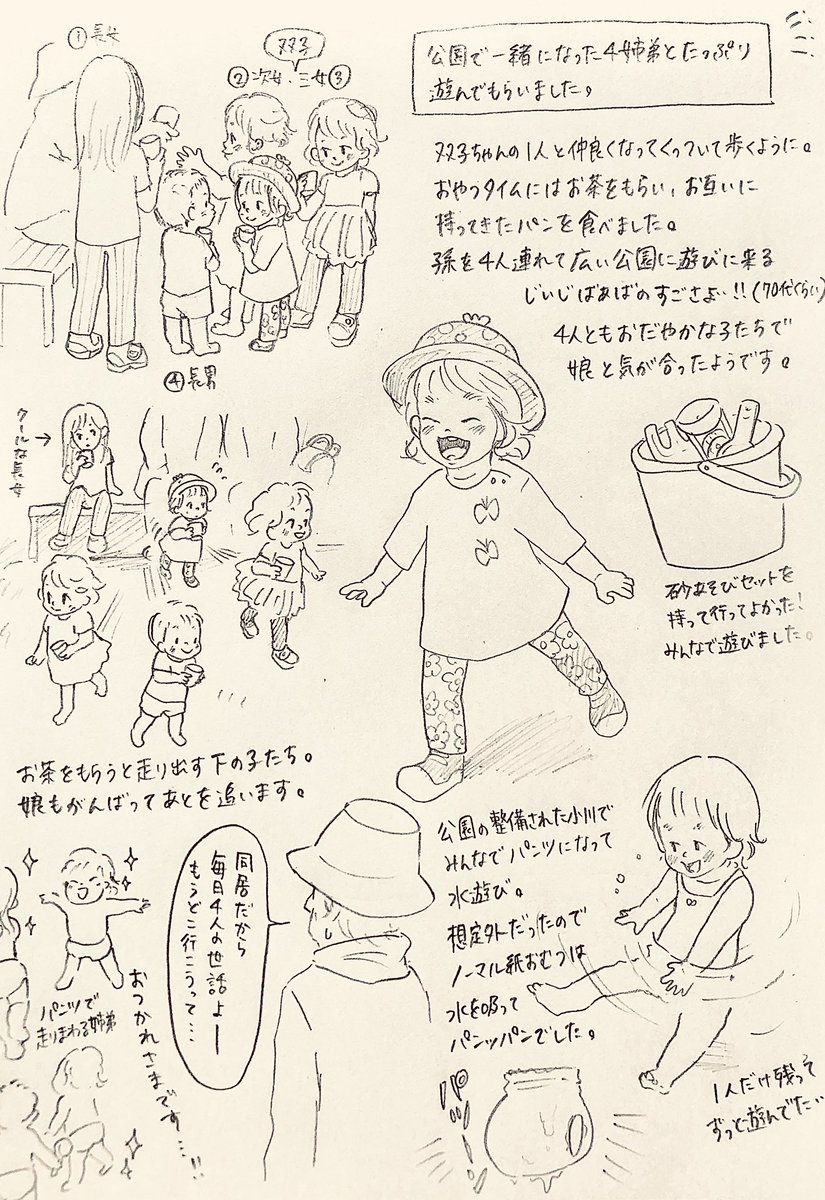 公園で一緒になった4姉弟とたっぷり
遊んでもらいました。
①長女
双子
②次女・三女③
④長男
双子ちゃんの1人と仲良くなってくっついて歩くように。
おやつタイムにはお茶をもらい、お互いに
持ってきたパンを食べました。
孫を4人連れて広い公園に遊びに来る
じいじばあばのすごさよ…!!(70代くらい)
4人ともおだやかな子たちで
娘と気が合ったようです。
クールな長女→
砂あそびセットを
持って行ってよかった!
みんなで遊びました。
お茶をもらうと走り出す下の子たち。
娘もがんばってあとを追います。
公園の整備された小川で
みんなでパンツになって
水遊び。
想定外だったので
ノーマル紙おむつは
水を吸って
パンッパンでした。
同居だから
毎日4人の世話よー
もうどこ行こうって…
おつかれさまです…!!
パンツで
走りまわる姉弟
パンッ!
1人だけ残って
ずっと遊んでた…